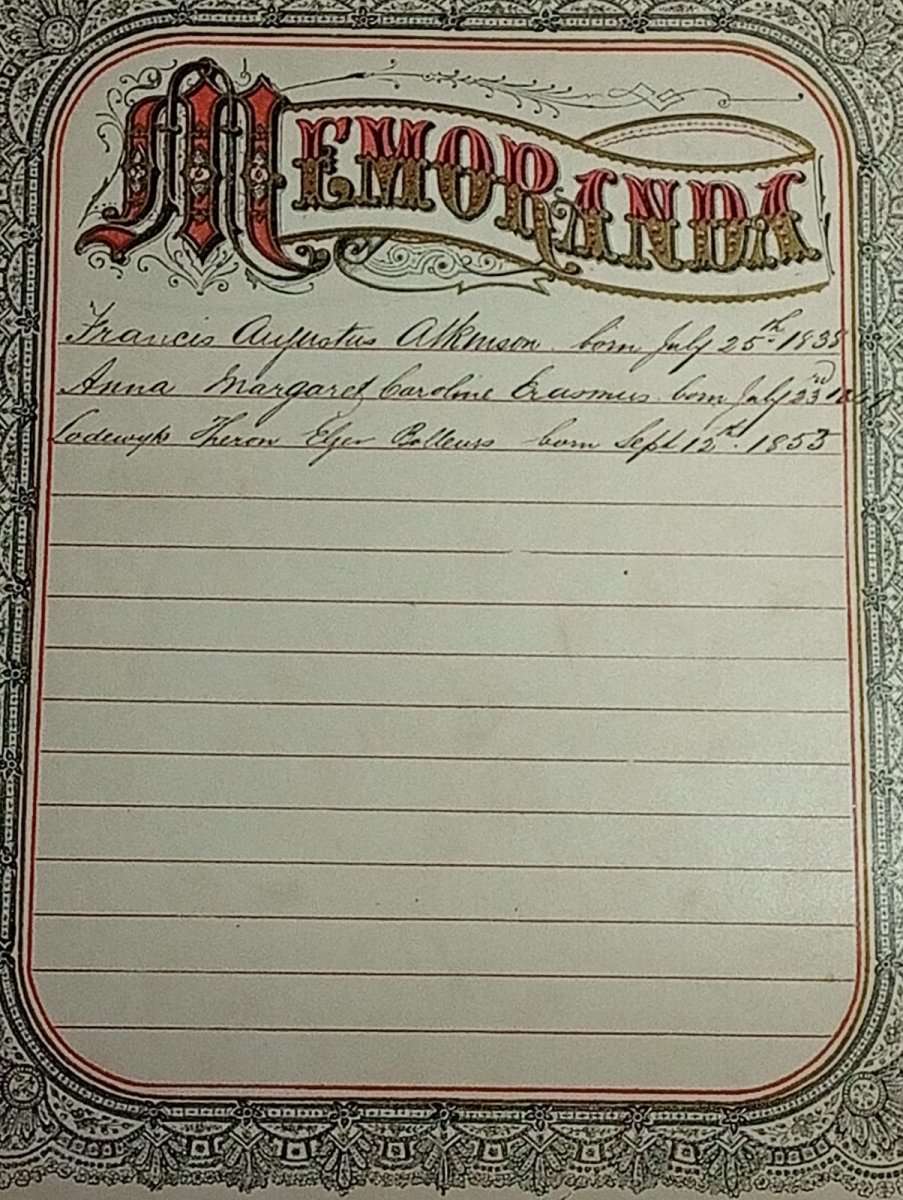 MEMORANDA
Francis Augustus Atkinson born July 25th 1838
Anna Margaret Caroline Erasmus born July 23rd
Lodewyk Theron born Sept 12th 1853